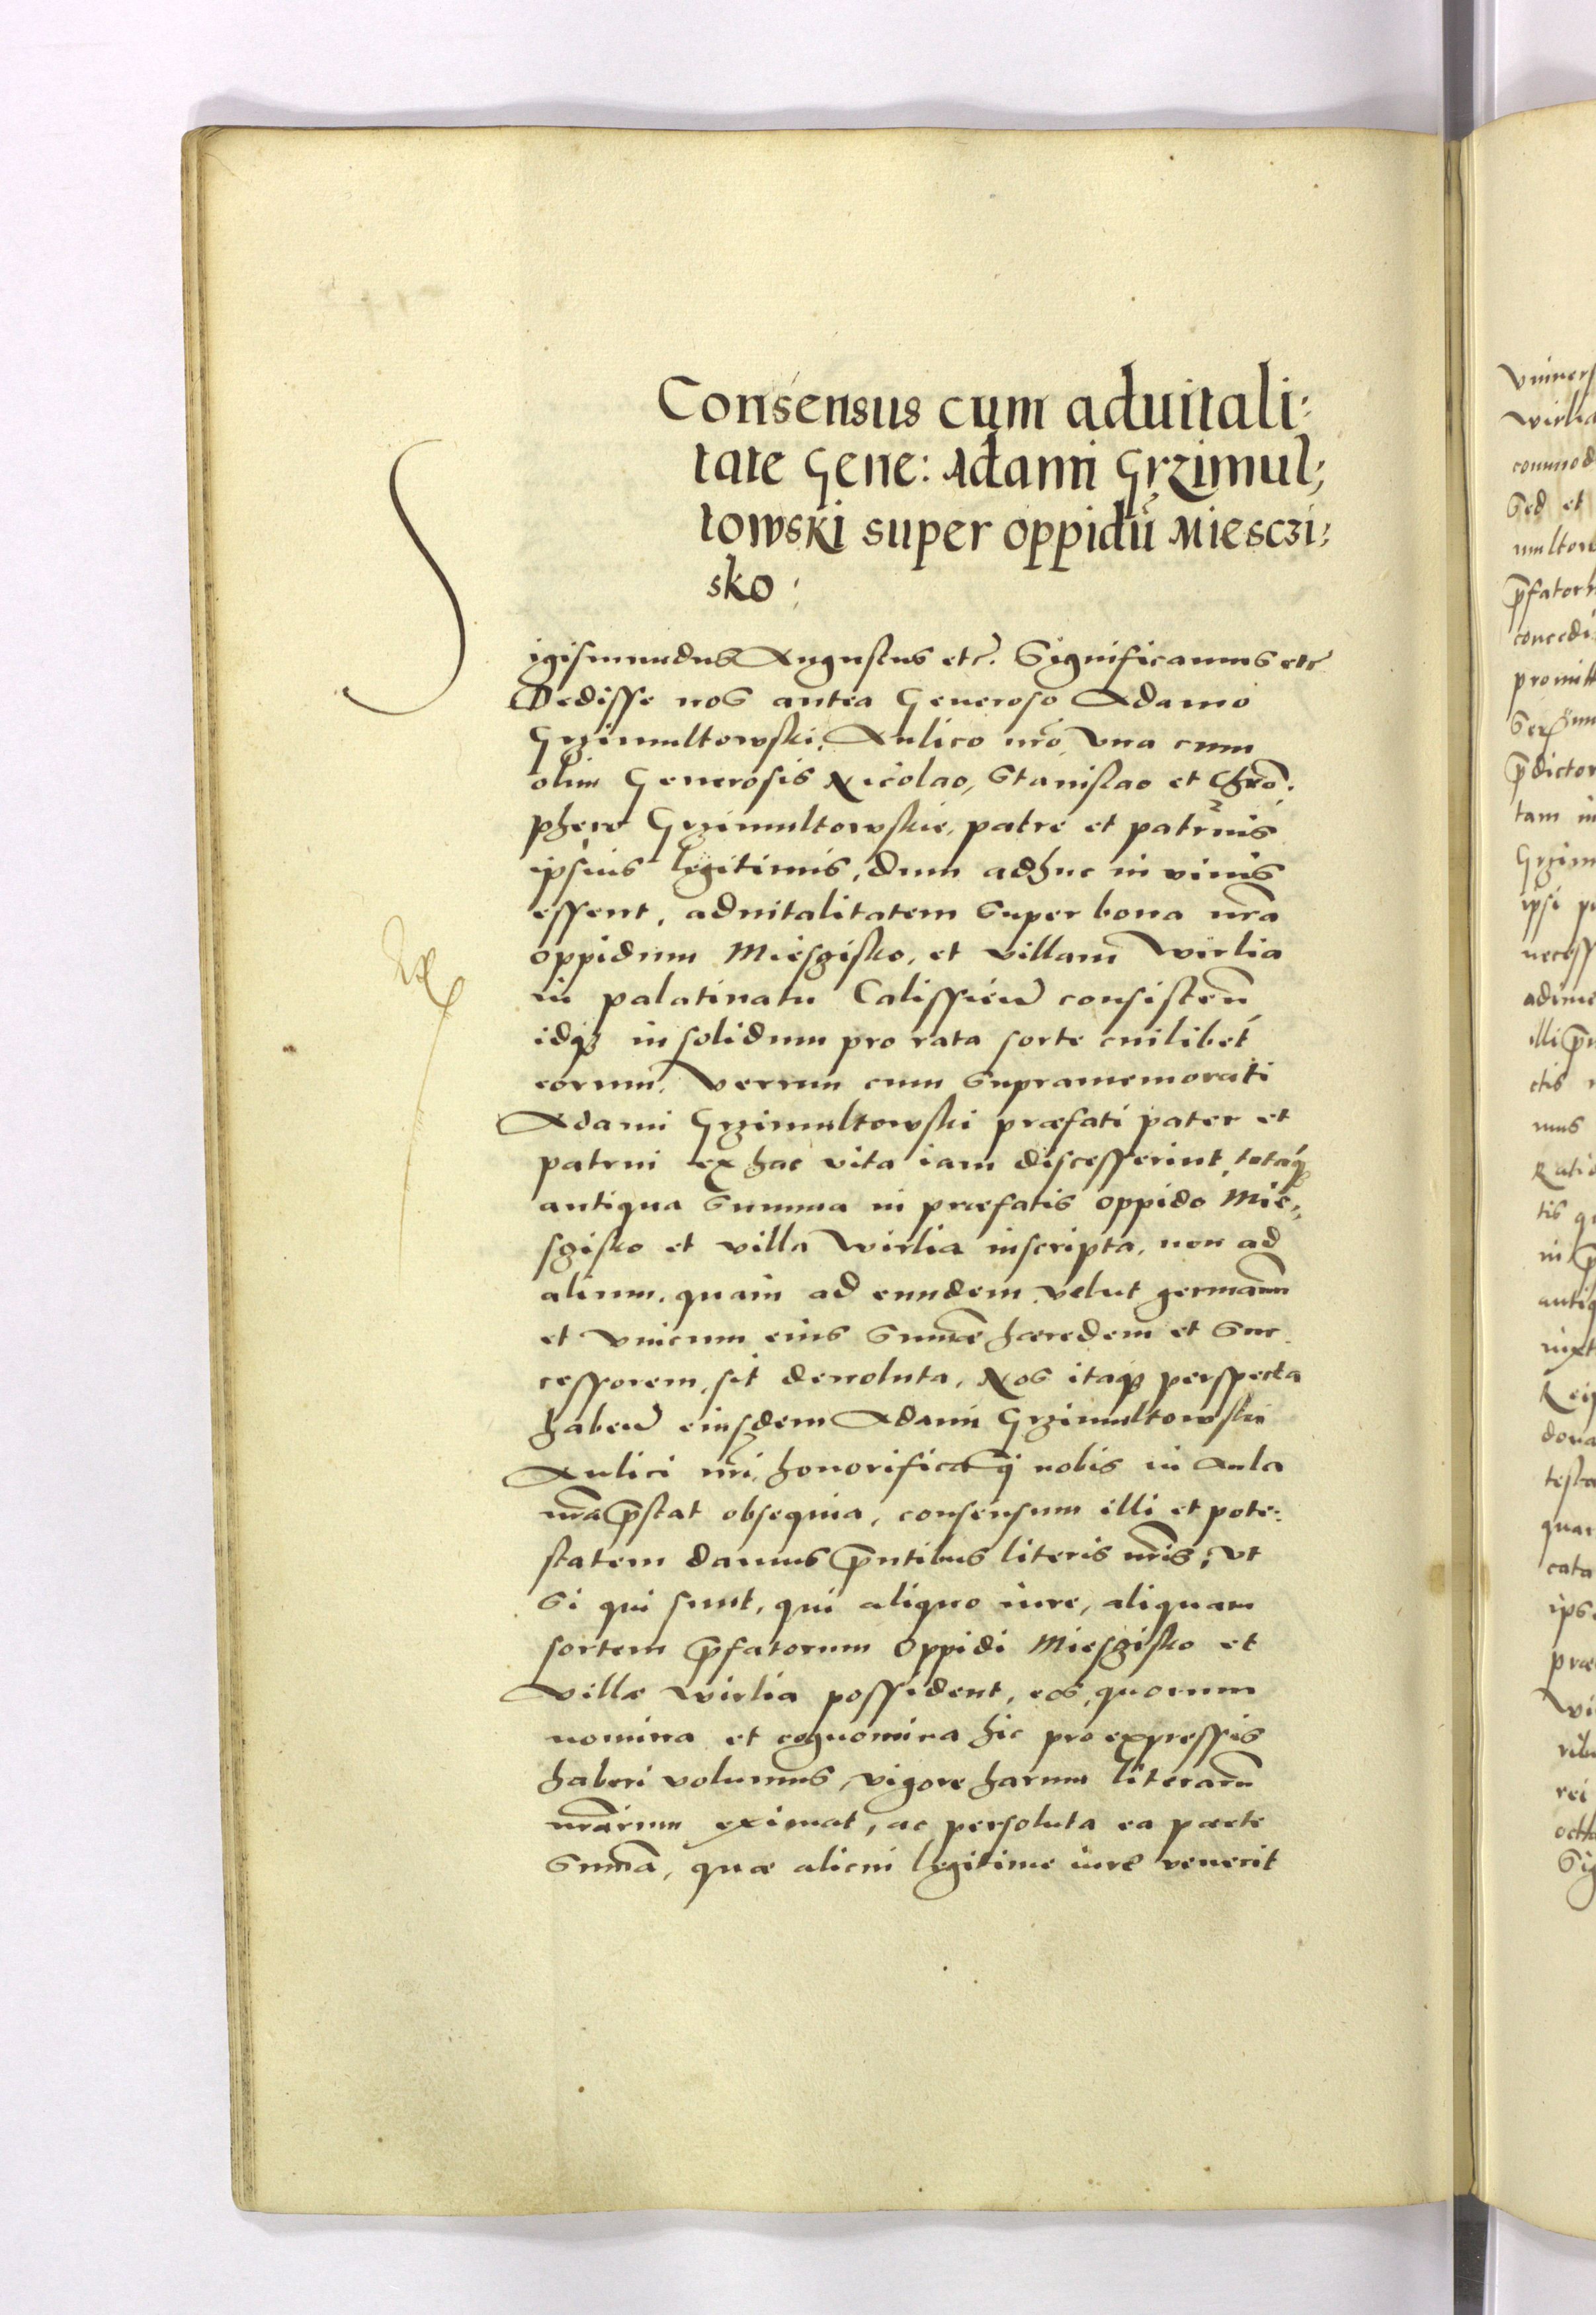 Consensus cum aduitali:
tate Gene: Adami Grzimul:
towski super oppidū Miesczi:
sko:
Sigismundus Augustus etc. Significamus etc
Dedisse nos antea Generoso Adamo
Grzimultowski, Aulico nrō, vna cum
olim Generosis Nicolao, Stanislao et Chrō:
phero Grzimultowskie, patre et patruis
ipsius legitimis, dum adhuc in viuis
essent, aduitalitatem super bona nrā
oppidum Miesziſko, et villam Wirlia
in palatinatu Calissien̄ consisten̄,
idq3 in solidum pro rata sorte cuilibet
eorum. Verum cum supramemorati
Adami Grzimultowski præfati pater et
patrui ex hac vita iam discesserint, totaq3
antiqua summa in præfatis oppido Mie:
szisko et villa Wirlia inscripta, non ad
alium, quam ad eundem velut germanū
et vnicum eius summæ hæredem et suc
cessorem, sit deuoluta, Nos itaq3 perspecta
haben̄ eiusdem Adami Grzimultowski
Aulici nrī, honorifica q̄ nobis in Aula
nrā p̄stat obsequia, consensum illi et pote:
statem damus p̄ntibus literis nrīs, vt
si qui sunt, qui aliquo iure, aliquam
sortem p̄fatorum oppidi Mieszisko et
villæ Wirlia possident, eos, quorum
nomina et cognomina hic pro expressis
haberi volumus, vigore harum literarū
nrārum eximat, ac persoluta ea parte
summæ, quæ alicui legitime iure venerit